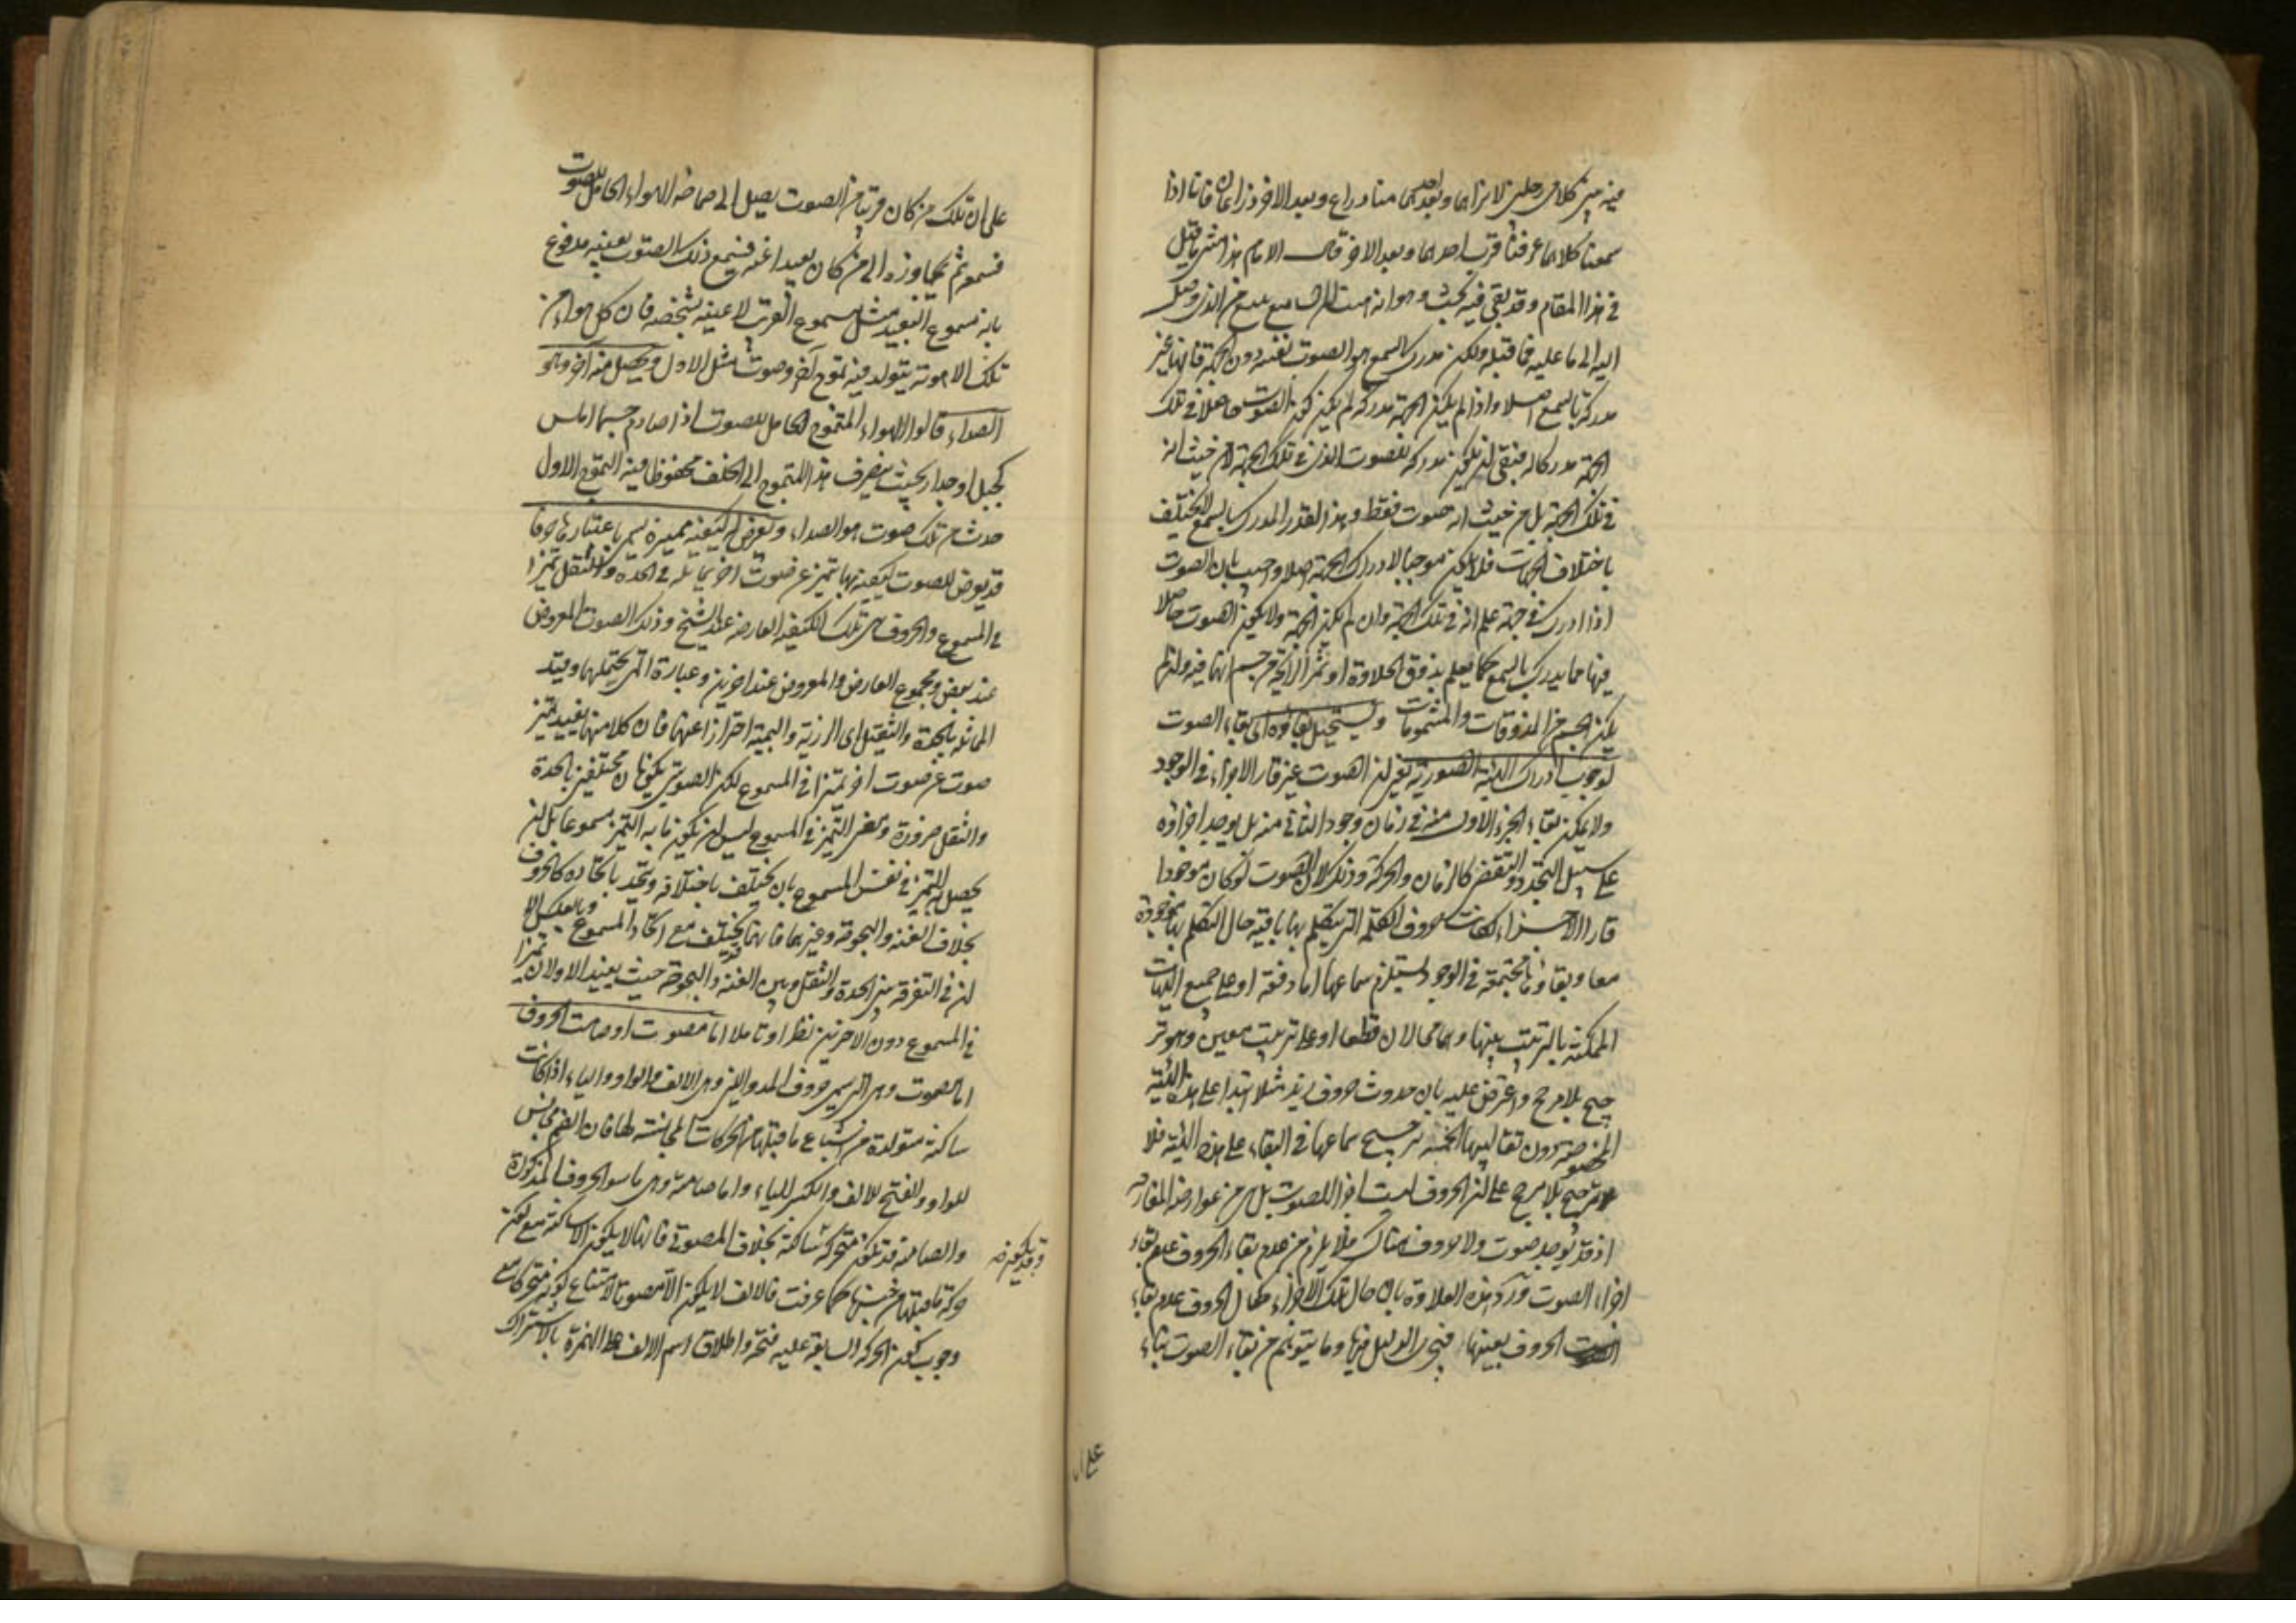 فيه بين كلامى رجلين لا نراهما وبعد احدهما منا ذراع وبعد الاخر ذراعان فانا اذا
سمعنا كلامهما عرفنا قرب احدهما وبعد الاخر قال الامام هذا منتهى ما قيل
فى هذا المقام وقد بقى فيه بحث وهو انه
اليه الى ما عليه فما قبله ولكن مدرك السمع هو الصوت نفسه دون الجهة فانها غير
مدركة بالسمع اصلا واذا لم يكن الجهة مدركة لم يكن كون الصوت حاصلا فى تلك
الجهة مدركا له فبقى ان يكون مدركه للصوت الذى فى تلك الجهة لا من حيث انه
فى تلك الجهة بل من حيث انه صوت فقط وهذا القدر المدرك بالسمع لا يختلف
باختلاف الجهات فلا يكون موجبا لادراك الجهة اصلا واجيب بان الصوت
اذا ادرك فى جهة علم انه فى تلك الجهة وان لم يكن الجهة ولا كون الصوت حاصلا
فيها مما يدرك بالسمع كما يعلم بذوق الحلاوة او شم الرائحة من جسم انهما فيه وان لم
يكن الجسم من المذوقات والمشمومات ويستحيل بقاؤه اى بقاء الصوت
لوجوب ادراك الهيئة الصورية يعنى ان الصوت غير قار الاجزاء فى الوجود
ولا يمكن بقاء الجزء الاول منه فى زمان وجود الثانى منه بل يوجد اجزاؤه
على سبيل التجدد والتقضى كالزمان والحركة وذلك لان الصوت لو كان موجودا
قار الاجزاء لكانت حروف الكلمة التى يتكلم بها باقية حال التكلم بها موجودة
معا وبقاؤها مجتمعة فى الوجود يستلزم سماعها اما دفعة او على جميع الهيئات
الممكنة بالترتيب بينها وهما محالان قطعا او على ترتيب معين وهو تر
جيح بلا مرجح واعترض عليه بان حدوث حروف زيد مثلا ابتداء على هذه الهيئة
المخصوصة دون تقاليبها الخمسة يرجح سماعها فى البقاء على هذه الهيئة فلا
ترجيح بلا مرجح على ان الحروف ليست اجزاء للصوت بل هى من عوارضه المفارقة
اذ قد يوجد صوت ولا حروف هناك فلا يلزم من عدم بقاء الحروف عدم بقاء
اجزاء الصوت ورد هذه العلاوة بان حال تلك الاجزاء كحال الحروف عدم بقاء
الحروف بعينها فيجرى الدليل فيها وما يتوهم من بقاء الصوت بقاء
على ان
على ان تلك من كان قريبا من الصوت يصل الى صماخه الهواء الحامل للصوت
فسمعه ثم يتجاوزه الى من كان بعيدا عنه فيسمع ذلك الصوت بعينه مدفوع
بانه مسموع البعيد مثل مسموع القريب لا عينه بشخصه فان كل هواء من
تلك الاهوية يتولد فيه تموج آخر وصوت مثل الاول ويحصل منه آخر وهو
الصداء قالوا الهواء المتموج الحامل للصوت اذا صادم جسما املس
كجبل او جدار بحيث ينصرف هذا المتموج الى الخلف محفوظا فيه التموج الاول
حدث من تلك صوت هو الصداء ويعرض له كيفية مميزة يسمى باعتبارها حرفا
قد يعرض للصوت كيفية بها تميز عن صوت اخر يماثله فى الحدة والثقل تميزا
فى المسموع والحروف هى تلك الكيفية العارضة عند الشيخ وذلك الصوت المعروض
عند بعض ومجموع العارض والمعروض عند اخرين وعبارة المتن يحتملها وقيد
المماثلة بالحدة والثقل اى الزيرية والبمية احترازا عنهما فان كلا منهما يفيد تميز
صوت عن صوت اخر تميزا فى المسموع لكن الصوتين يكونان مختلفين بالحدة
والثقل ضرورة ومعنى التميز فى المسموع ليس ان يكون ما به التميز مسموعا بل ان
يحصل به التميز فى نفس المسموع بان يختلف باختلافه ويتحد باتحاده كالحروف
بخلاف الغنة والبحوحة وغيرهما فانها قد يختلف مع اتحاد المسموع وبالعكس الا
ان فى التفرقة بين الحدة والثقل وبين الغنة والبحوحة حيث يفيد الاولان تميزا
فى المسموع دون الاخرين نظرا وتاملا اما مصوت او صامت الحروف
اما مصوت وهى التى يسمى حروف المد واللين وهى الالف والواو والياء اذا كانت
ساكنة متولدة من اشباع ما قبلها من الحركات المجانسة لها فان الضم مجانس
للواو والفتح للالف والكسر للياء واما صامتة وهى ما سوى الحروف المذكورة
والصامتة قد تكون متحركة وساكنة بخلاف المصوتة فانها لا يكون الا ساكنة مع كون
حركة ما قبلها من جنسها كما عرفت فالالف لا يكون الا مصوتا لامتناع كونه متحركا مع
وجوب كون الحركة السابقة عليه فتحة واطلاق اسم الالف على الهمزة بالاشتراك